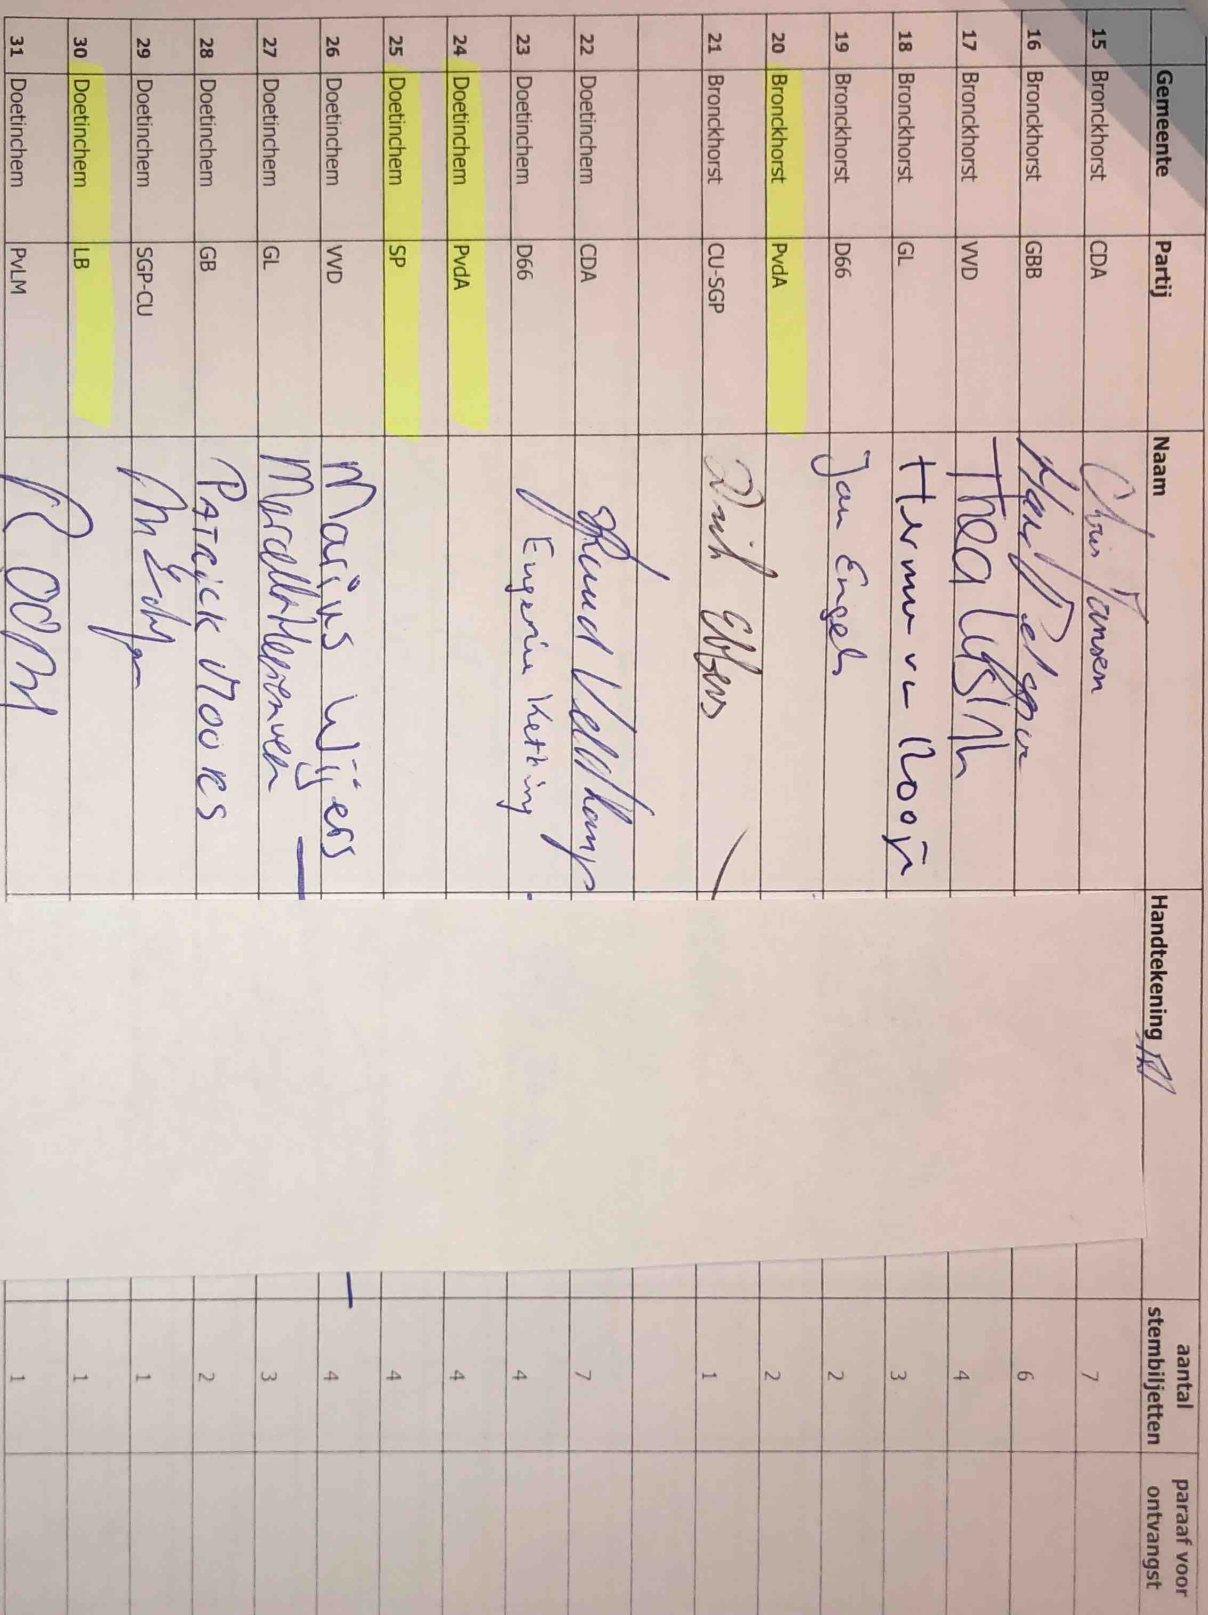 Gemeente Partij Naam Handtekening aantal stembiljetten paraaf voor ontvangst
15 Bronckhorst CDA Chris Jansen 7
16 Bronckhorst GBB 6
17 Bronckhorst VVD Thea 4
18 Bronckhorst GL Rooij 3
19 Bronckhorst D66 Jan Engels 2
20 Bronckhorst PvdA 2
21 Bronckhorst CU-SGP Ebbers 1
22 Doetinchem CDA Ruud Veldkamp 7
23 Doetinchem D66 Eugenie Ketting 4
24 Doetinchem PvdA 4
25 Doetinchem SP 4
26 Doetinchem VVD Marius Wijers 4
27 Doetinchem GL 3
28 Doetinchem GB Patrick Moores 2
29 Doetinchem SGP-CU 1
30 Doetinchem LB 1
31 Doetinchem PvLM 1